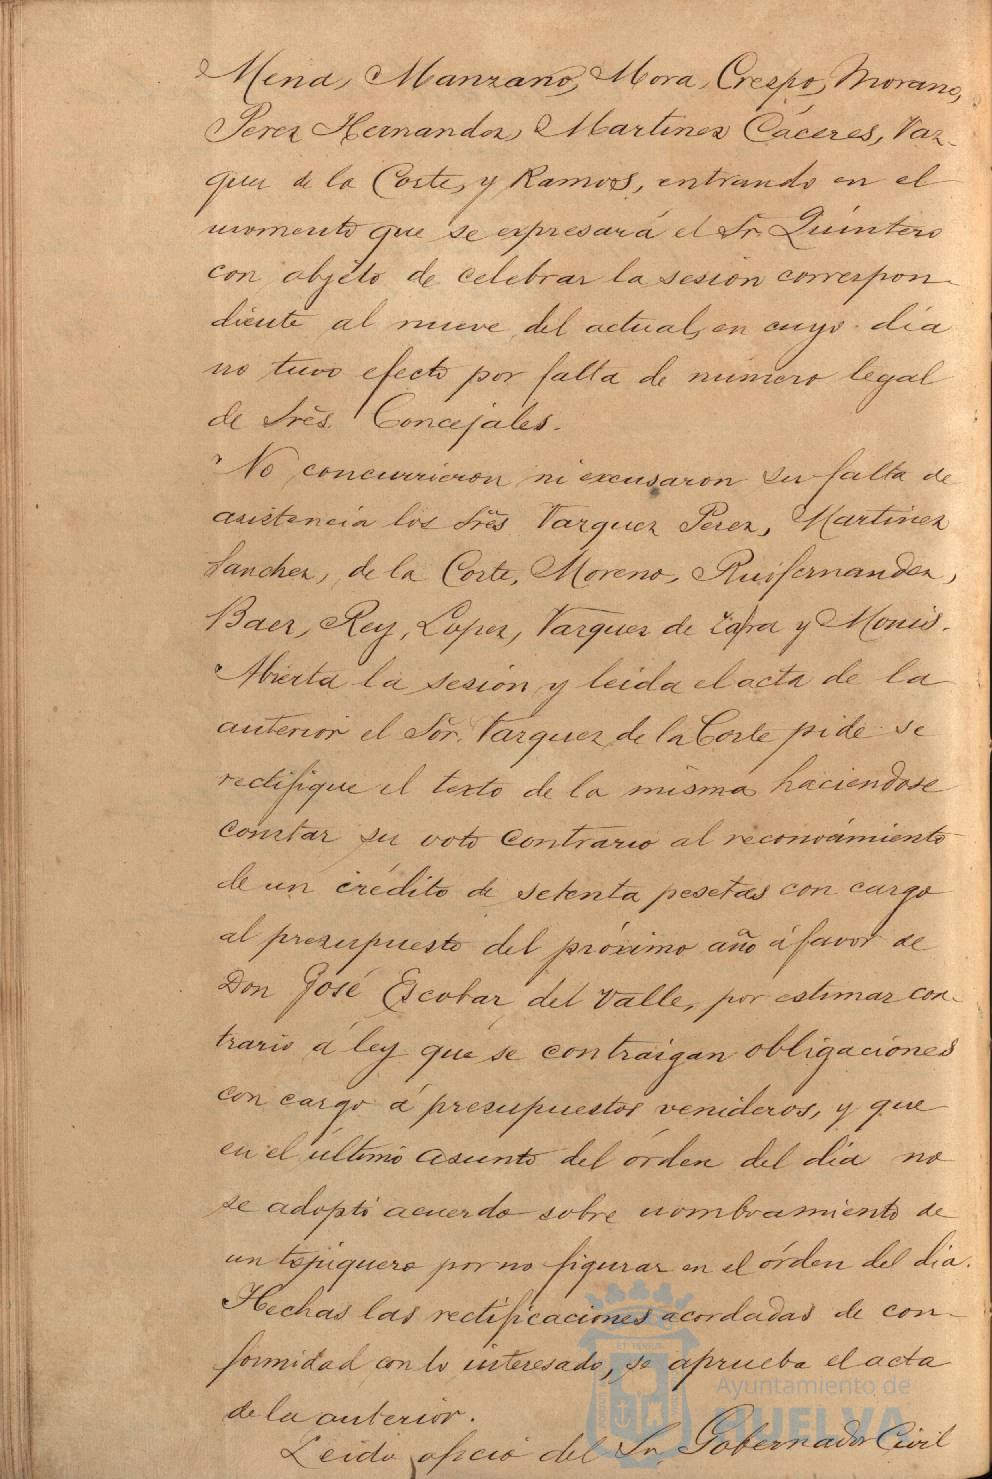 Mena, Manzano, Mora, Crespo, Morano,
Perez Hernandez, Martinez Cáceres, Vaz-
quez de la Corte, y Ramos, entrando en el
momento que se expresará el Sr. Quintero
con objeto de celebrar la sesion correspon-
diente al nueve del actual, en cuyo dia
no tuvo efecto por falta de número legal
de Srẽs. Concejales.
No concurrieron ni excusaron su falta de
asistencia los Srẽs Vazquez Perez, Martinez
Sanchez, de la Corte, Moreno, Ruifernandez,
Baez, Rey, Lopez, Vazquez de Zafra y Monis.
Abierta la sesion y leida el acta de la
anterior el Sõr. Vazquez de la Corte pide se
rectifique el texto de la misma haciendose
constar su voto contrario al reconocimiento
de un crédito de setenta pesetas con cargo
al presupuesto del próximo año á favor de
Don José Escobar del Valle, por estimar con-
trario á ley que se contraigan obligaciones
con cargo á presupuestos venideros, y que
en el último asunto del órden del dia no
se adoptó acuerdo sobre nombramiento de
un por no figurar en el órden del dia.
Hechas las rectificaciones acordadas de con-
formidad con lo interesado, se aprueba el acta
de la anterior.
Leido oficio del Sr. Gobernador Civil
Ayuntamiento de
HUELVA